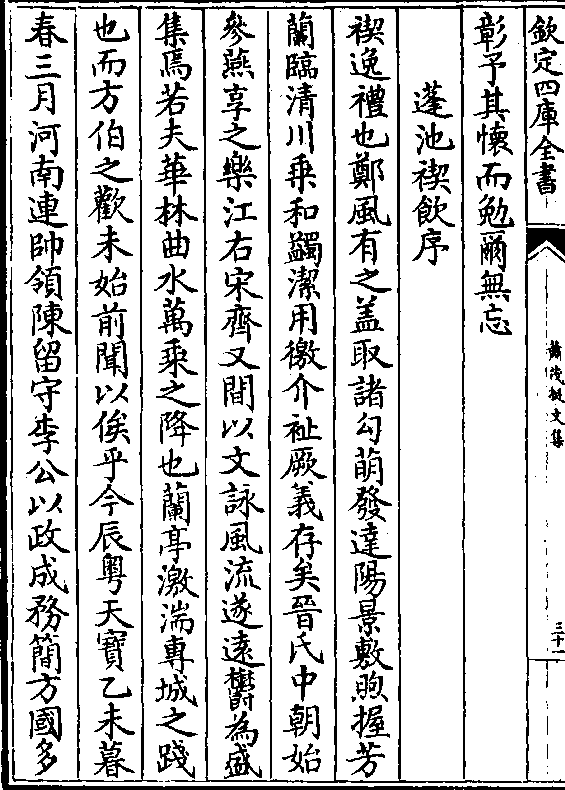 欽定四庫全書
蕭茂挺文集
三十一
彰予其懷而勉爾無忘
蓬池禊飲序
禊逸禮也鄭風有之盖取諸勾萌發達陽景敷煦握芳
蘭臨清川乗和蠲潔用徼介祉厥義存矣晉氏中朝始
參燕享之樂江右宋齊又間以文詠風流遂逺欝為盛
集焉若夫華林曲水萬乗之降也蘭亭激湍專城之踐
也而方伯之歡未始前聞以俟乎今辰粤天寶乙未暮
春三月河南連帥領陳留守李公以政成務簡方國多